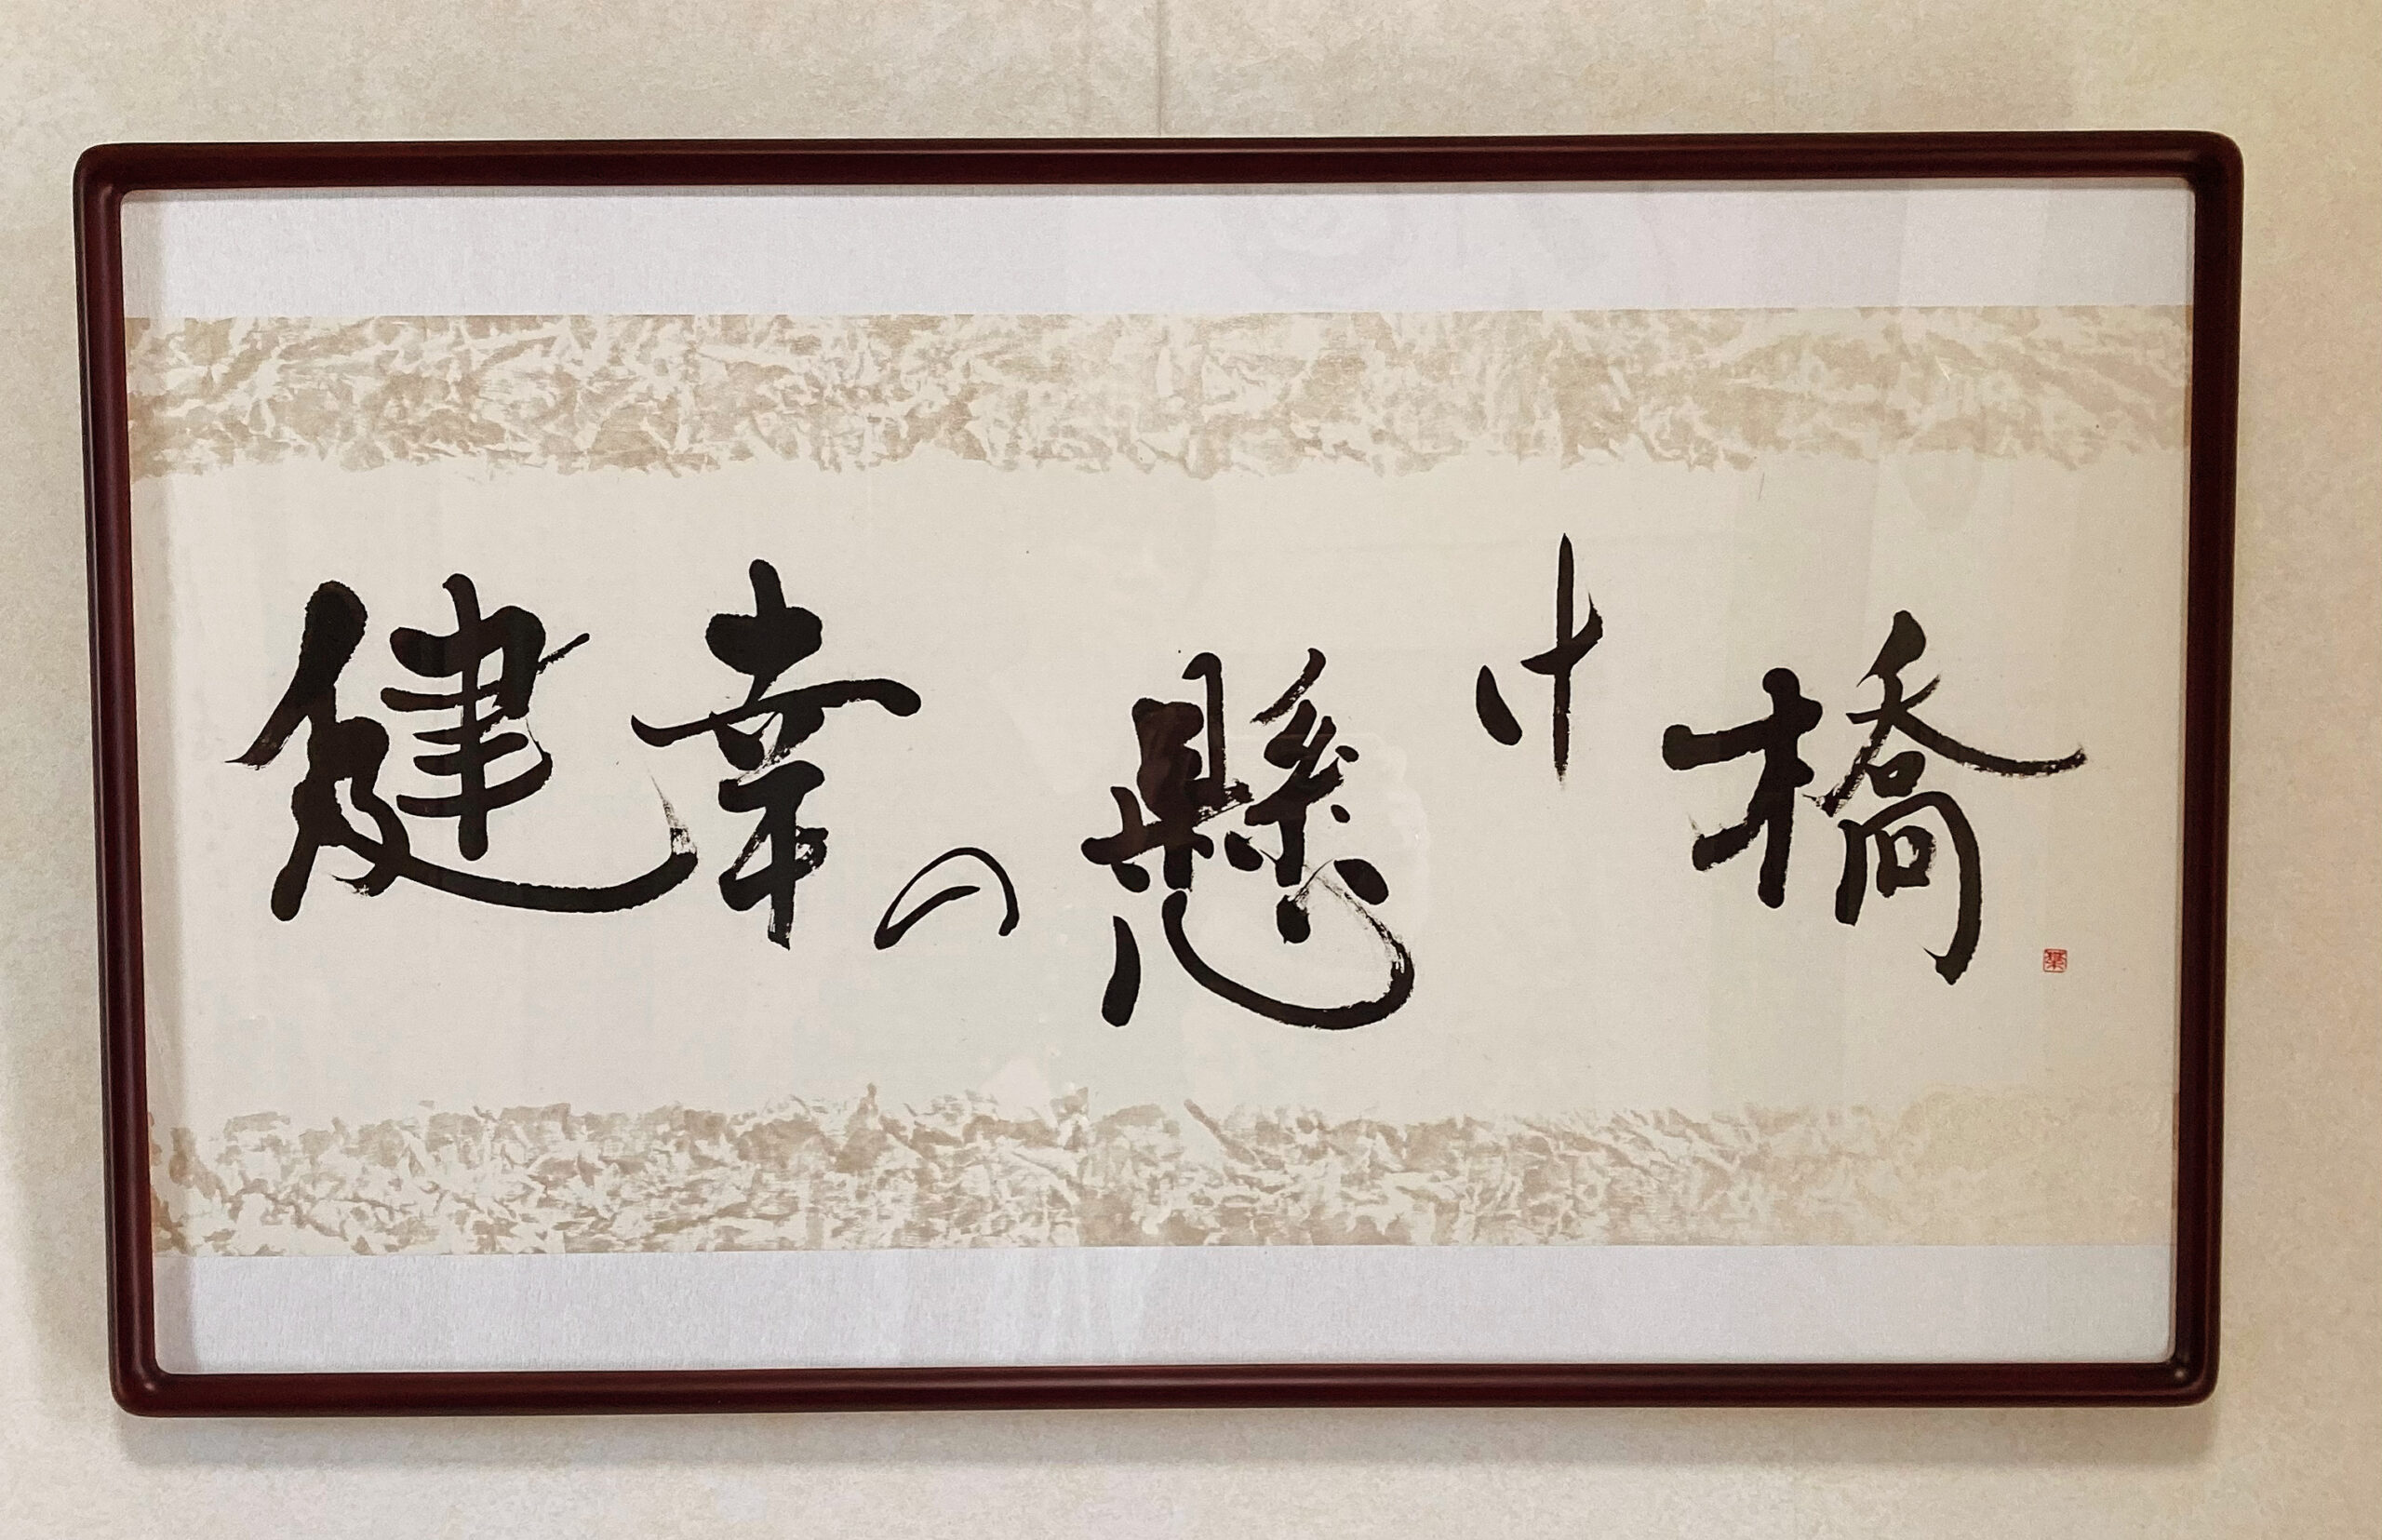 健幸の懸け橋